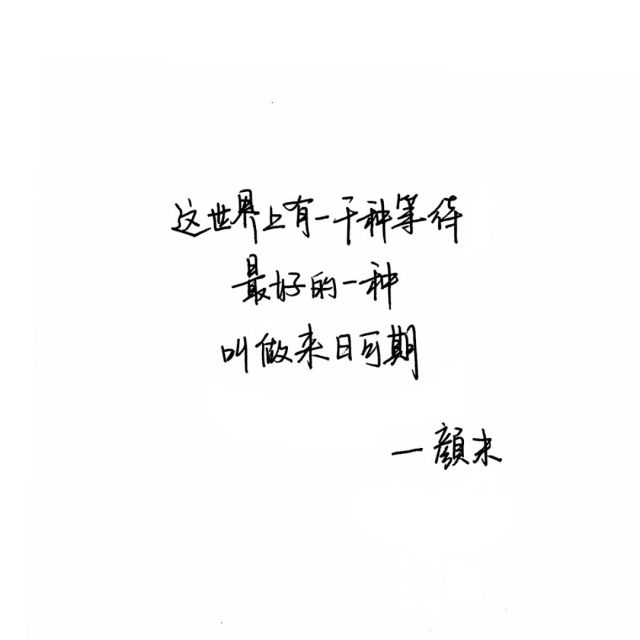 这世界上有一千种等待
最好的一种
叫做来日可期
一顔末